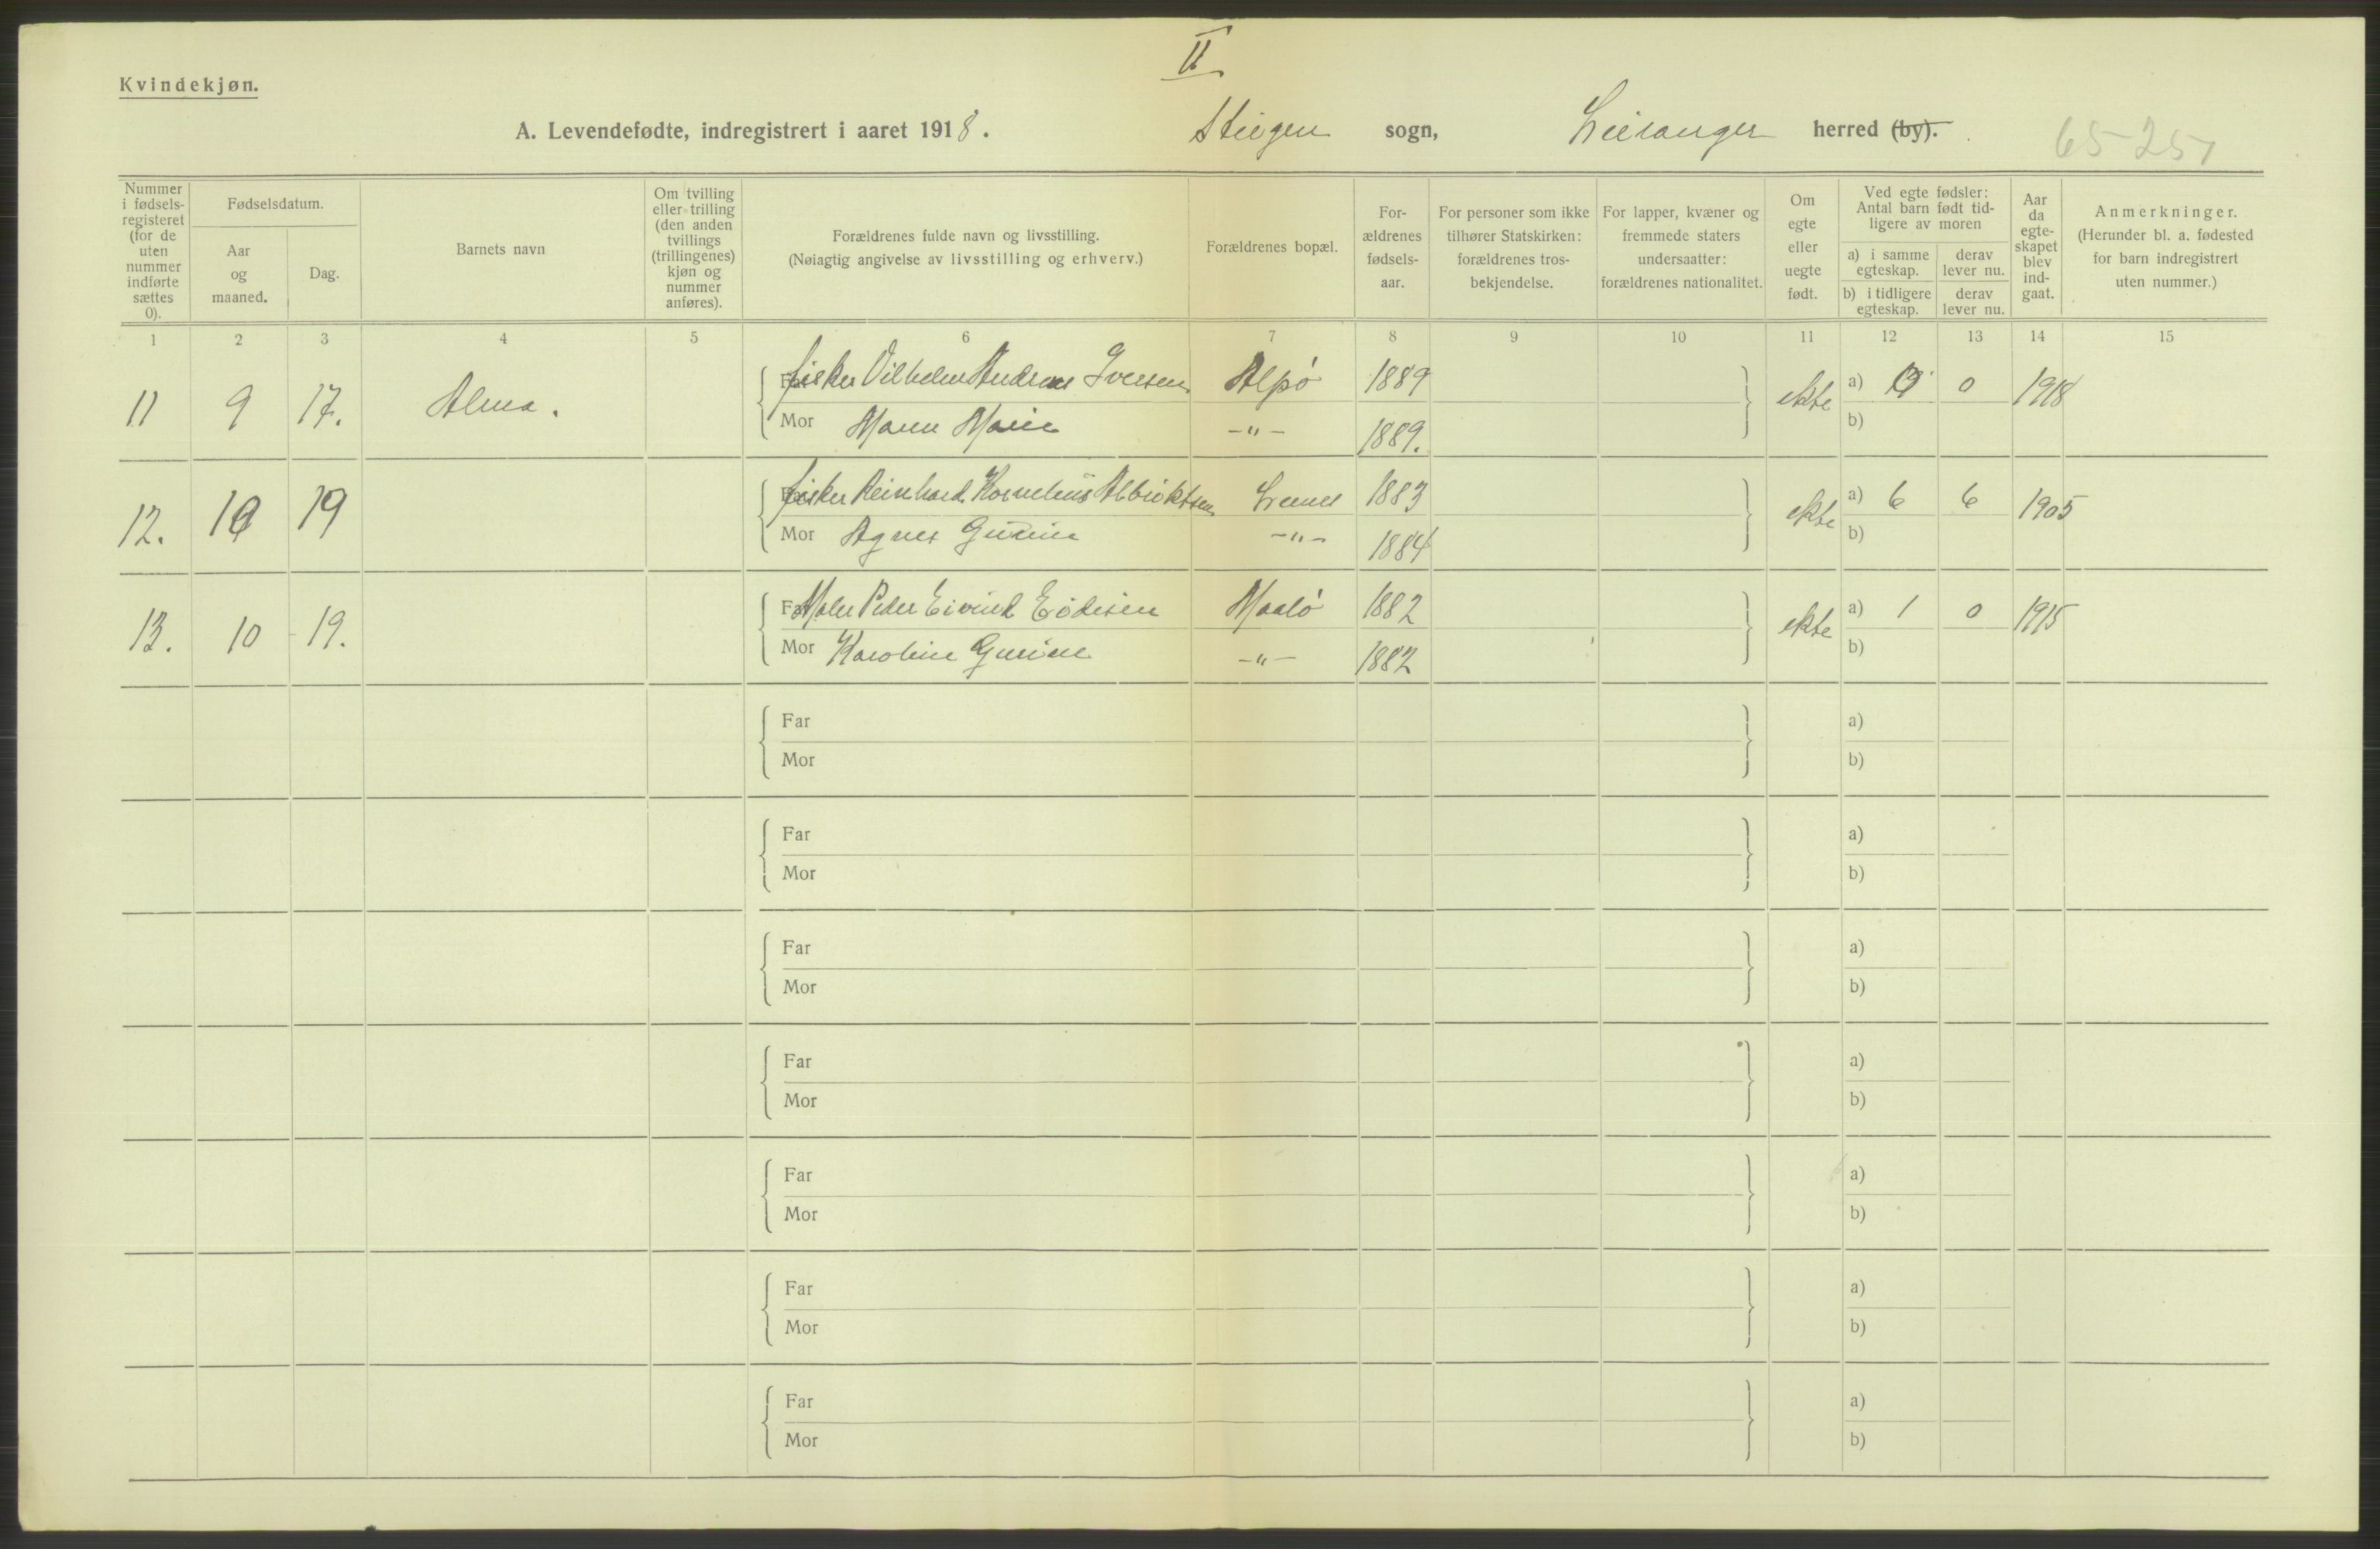 II
Kvindekjøn.
A. Levendefødte, indregistrert i aaret 1918. Steigen sogn, Leiranger herred (by).
65-251
Nummer i fødsels-registeret (for de uten nummer indførte sættes 0).
Fødselsdatum.
Aar og maaned.
Dag.
Barnets navn
Om tvilling eller trilling (den anden tvillings (trillingenes) kjøn og nummer anføres).
Forældrenes fulde navn og livsstilling.
(Nøiagtig angivelse av livsstilling og erhverv.)
Forældrenes bopæl.
For-ældrenes fødsels-aar.
For personer som ikke tilhører Statskirken: forældrenes tros-bekjendelse.
For lapper, kvæner og fremmede staters undersaatter: forældrenes nationalitet.
Om egte eller uegte født.
Ved egte fødsler: Antal barn født tid-ligere av moren
a) i samme egteskap.
derav lever nu.
b) i tidligere egteskap.
derav lever nu.
Aar da egte-skapet blev ind-gaat.
Anmerkninger.
(Herunder bl. a. fødested for barn indregistrert uten nummer.)
1 2 3 4 5 6 7 8 9 10 11 12 13 14 15
11 9 17. Alma. Far Fisker Vilhelm Andreas Iversen Alpö 1889 ekte a) 0 1918
Mor Maren Marie -"- 1889. b)
12. 10 19 Far Fisker Reinhard Kornelius Albriktsen 1883 ekte a) 6 6 1905
Mor Agnes -"- 1884 b)
13. 10 19. Far Maler Peder Eivind Maalö 1882 ekte a) 1 0 1915
Mor Karoline Gurine -"- 1882 b)
Far a)
Mor b)
Far a)
Mor b)
Far a)
Mor b)
Far a)
Mor b)
Far a)
Mor b)
Far a)
Mor b)
Far a)
Mor b)